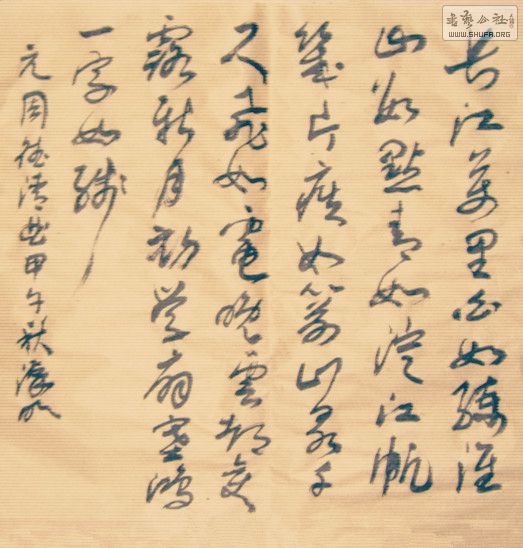 書藝公社
WWW.SHUFA.ORG
長江萬里白如練淮
山数點青如淀江帆
幾片疾如箭山泉千
尺飛如電晚雲都变
露新月初学扇塞鴻
一字如線
元周德清曲甲午秋